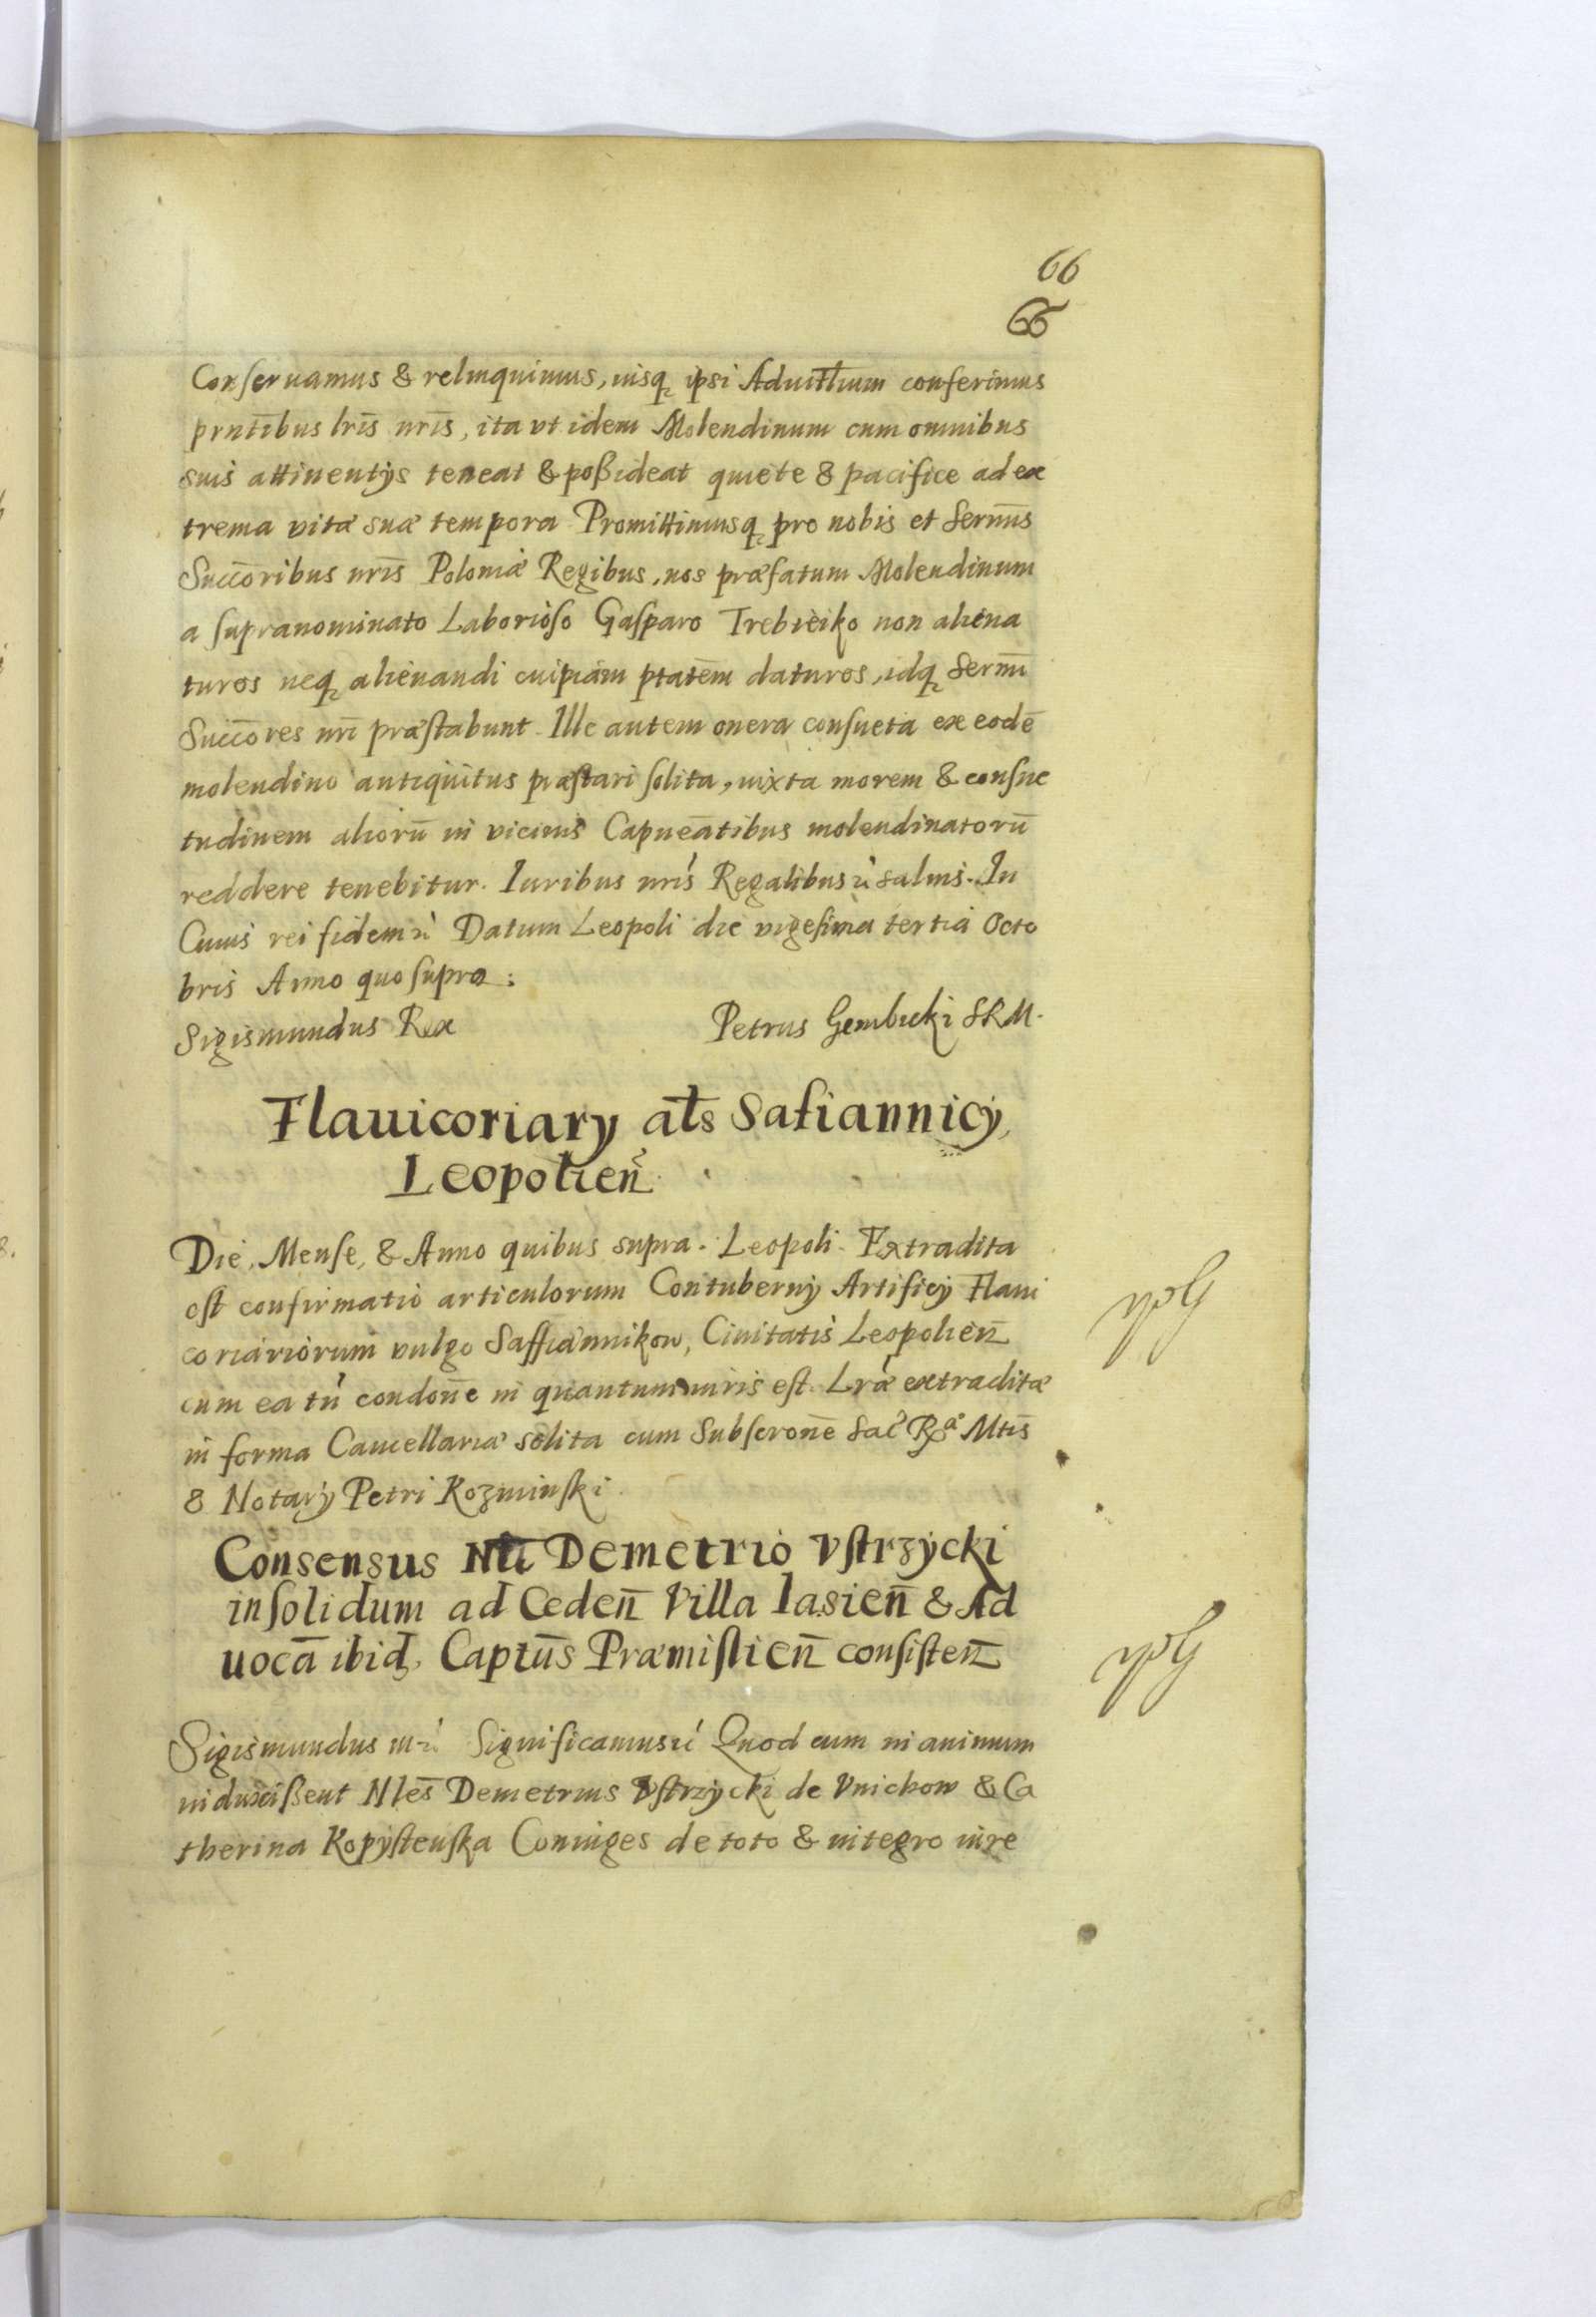 66
66
Conseruamus & relinquimus, iusq ipsi Aduitlium conferimus
prntibus lris nris, ita vt idem Molendinum cum omnibus
suis attinentys teneat & possideat quiete & pacifice ad ex
trema vitæ suæ tempora Promittimusq pro nobis et Sermis
Succoribus nris Poloniæ Regibus, nos præfatum Molendinum
a supranominato Laborioso Gasparo Trebieiko non aliena
turos neq alienandi cuipiam ptatem daturos, idq Sermi
Succores nri præstabunt. Ille autem onera consueta ex eodē
molendino antiquitus præstari solita, iuxta morem & consue
tudinem aliorū in vicinis Capneātibus molendinatorū
reddere tenebitur. Iuribus nris Regalibus salvis. In
Cuius rei fidem Datum Leopoli die vigesima tertia Octo
bris Anno quo supra:
Sigismundus Rex Petrus Gembicki SRM.
Flauicoriary als Safiannicy,
Leopolien
Die, Mense, & Anno quibus supra. Leopoli. Extradita
est confirmatio articulorum Contuberny Artificy Flaui
coriariorum vulgo Saffiannikow, Ciuitatis Leopolien
cum ea tn condone in quantum iuris est. Lræ extraditæ
in forma Cancellariæ solita cum Subscrone Sac Ræ Mtis
& Notary Petri Kozminski.
Consensus Nli Demetrio Vstrzycki
insolidum ad Ceden Villa Iasien & Ad
uocā ibid. Captus Præmislien consisten
Sigismundus III Significamus Quod cum in animum
induxissent Nles Demetrius Vstrzycki de Vnichow & Ca
therina Kopystenska Coniuges de toto & integro iure